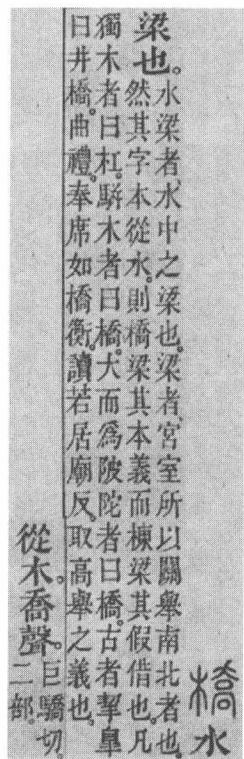 橋水
梁也。水梁者、水中之梁也。梁者、宮室所以關舉南北者也。
然其字本從水。則橋梁其本義而棟梁其假借也。凡
獨木者曰杠。駢木者曰橋。大而爲陂陀者曰橋。古者挈皐
曰井橋。曲禮。奉席如橋衡。讀若居廟反。取高舉之義也。
從木。喬聲。巨驕切。
二部。